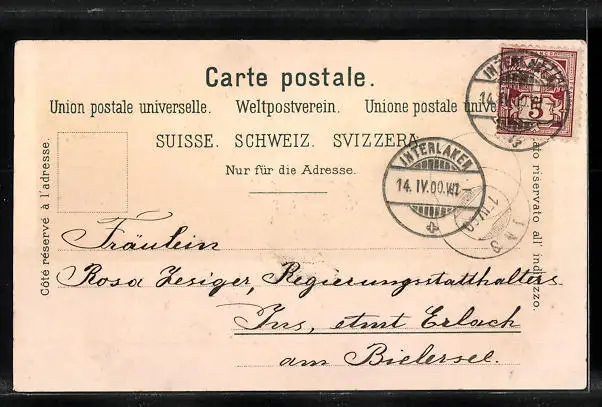 Carte postale.
Union postale universelle. Weltpostverein. Unione postale
SUISSE. SCHWEIZ. SVIZZERA
Nur für die Adresse.
Côté réservé à l'adresse.
lato riservato all' indirizzo.
INTERLAKEN
14.IV.00.VII
5
INTERLAKEN
14.IV.00.VII
INS
Fräulein
Rosa Zesiger, Regierungsstatthalters
Ins, etmt Erlach
am Bielersee.